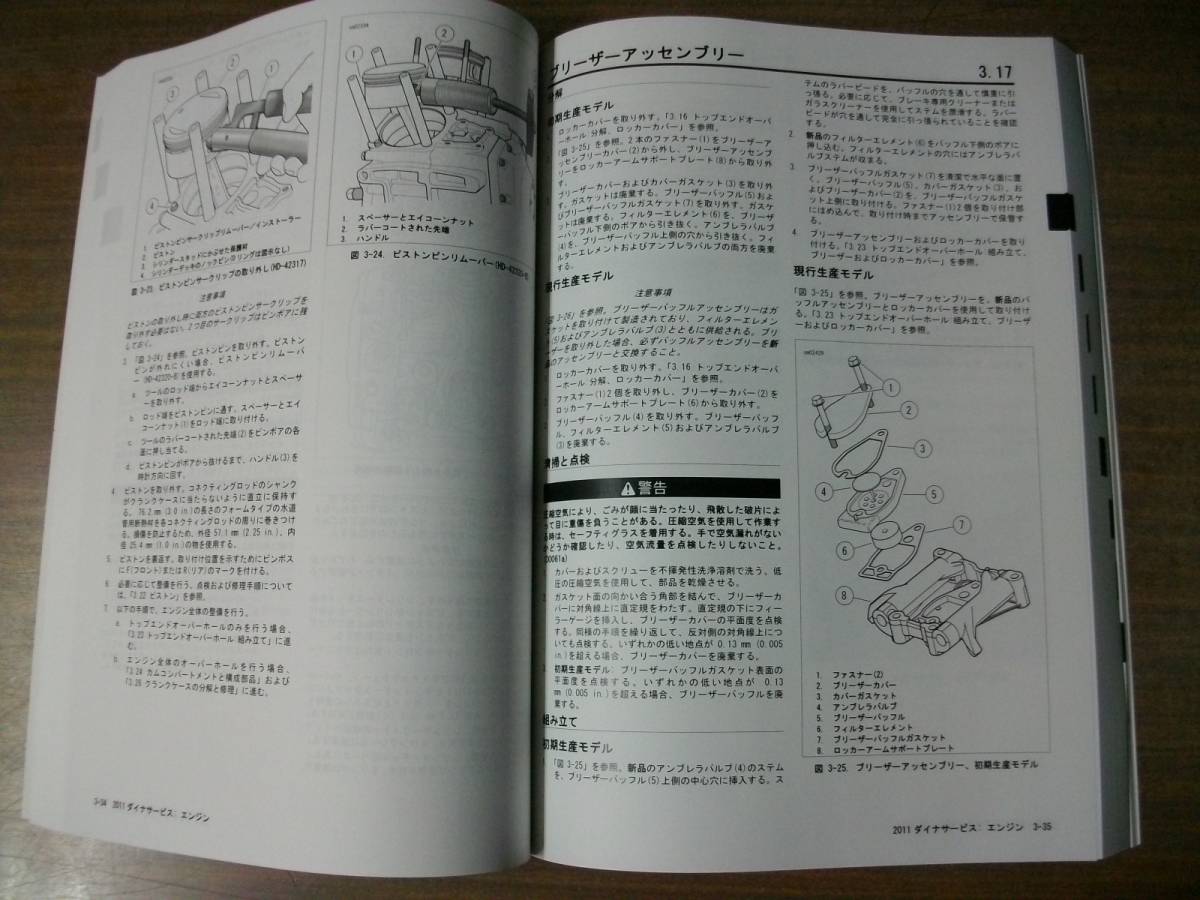 1. ピストンピンサークリップリムーバー/インストーラー
2. ピストン
3. シリンダースタッドにかぶせた保護材
4. シリンダーデッキのノックピン(Oリングは図示なし)
図 3-23. ピストンピンサークリップの取り外し(HD-42317)
注意事項
ピストンの取り外し時に両方のピストンピンサークリップを
取り外す必要はない。2つ目のサークリップはピンボアに残
しておく。
3. 「図 3-24」を参照。ピストンピンを取り外す。ピストン
ピンが外れにくい場合、ピストンピンリムーバ
ー(HD-42320-B)を使用する。
a. ツールのロッド端からエイコーンナットとスペーサ
ーを取り外す。
b. ロッド端をピストンピンに通す。スペーサーとエイ
コーンナット(1)をロッド端に取り付ける。
c. ツールのラバーコートされた先端(2)をピンボアの各
面に押し当てる。
d. ピストンピンがボアから抜けるまで、ハンドル(3)を
時計方向に回す。
4. ピストンを取り外す。コネクティングロッドのシャンク
がクランクケースに当たらないように直立に保持す
る。76.2 mm (3.0 in)の長さのフォームタイプの水道
管用断熱材を各コネクティングロッドの周りに巻きつけ
る。損傷を防止するため、外径 57.1 mm (2.25 in.)、内
径 25.4 mm (1.0 in)の物を使用する。
5. ピストンを裏返す。取り付け位置を示すためにピンボス
にF(フロント)またはR(リア)のマークを付ける。
6. 必要に応じて整備を行う。点検および修理手順について
は、「3.22 ピストン」を参照。
7. 以下の手順で、エンジン全体の整備を行う。
a. トップエンドオーバーホールのみを行う場合、
「3.23 トップエンドオーバーホール 組み立て」に進
む。
b. エンジン全体のオーバーホールを行う場合、
「3.24 カムコンパートメントと構成部品」および
「3.26 クランクケースの分解と修理」に進む。
1. スペーサーとエイコーンナット
2. ラバーコートされた先端
3. ハンドル
図 3-24. ピストンピンリムーバー(HD-42320-B)
3-34 2011 ダイナサービス: エンジン
ブリーザーアッセンブリー
3.17
分解
初期生産モデル
ロッカーカバーを取り外す。「3.16 トップエンドオーバ
ーホール 分解、ロッカーカバー」を参照。
「図 3-25」を参照。2本のファスナー(1)をブリーザーア
ッセンブリーカバー(2)から外し、ブリーザーアッセンブ
リーをロッカーアームサポートプレート(8)から取り外
す。
ブリーザーカバーおよびカバーガスケット(3)を取り外
す。ガスケットは廃棄する。ブリーザーバッフル(5)およ
びブリーザーバッフルガスケット(7)を取り外す。ガスケ
ットは廃棄する。フィルターエレメント(6)を、ブリーザ
ーバッフル下側のボアから引き抜く。アンブレラバルブ
(4)を、ブリーザーバッフル上側の穴から引き抜く。フィ
ルターエレメントおよびアンブレラバルブの両方を廃棄
する。
現行生産モデル
注意事項
「図 3-26」を参照。ブリーザーバッフルアッセンブリーはガ
スケットを取り付けて製造されており、フィルターエレメン
ト(5)およびアンブレラバルブ(3)とともに供給される。ブリ
ーザーを取り外した場合、必ずバッフルアッセンブリーを新
品のアッセンブリーと交換すること。
ロッカーカバーを取り外す。「3.16 トップエンドオーバ
ーホール 分解、ロッカーカバー」を参照。
ファスナー(1)2個を取り外し、ブリーザーカバー(2)を
ロッカーアームサポートプレート(6)から取り外す。
ブリーザーバッフル(4)を取り外す。ブリーザーバッフ
ル、フィルターエレメント(5)およびアンブレラバルブ
(3)を廃棄する。
清掃と点検
警告
圧縮空気により、ごみが顔に当たったり、飛散した破片によ
って目に重傷を負うことがある。圧縮空気を使用して作業す
る時は、セーフティグラスを着用する。手で空気漏れがない
かどうか確認したり、空気流量を点検したりしないこと。
(00061a)
カバーおよびスクリューを不揮発性洗浄溶剤で洗う。低
圧の圧縮空気を使用して、部品を乾燥させる。
ガスケット面の向かい合う角部を結んで、ブリーザーカ
バーに対角線上に直定規をわたす。直定規の下にフィー
ラーゲージを挿入し、ブリーザーカバーの平面度を点検
する。同様の手順を繰り返して、反対側の対角線上につ
いても点検する。いずれかの低い地点が 0.13 mm (0.005
in)を超える場合、ブリーザーカバーを廃棄する。
初期生産モデル: ブリーザーバッフルガスケット表面の
平面度を点検する。いずれかの低い地点が 0.13
mm (0.005 in.)を超える場合、ブリーザーバッフルを廃
棄する。
組み立て
初期生産モデル
「図 3-25」を参照。新品のアンブレラバルブ(4)のステム
を、ブリーザーバッフル(5)上側の中心穴に挿入する。ス
テムのラバービードを、バッフルの穴を通して慎重に引
っ張る。必要に応じて、ブレーキ専用クリーナーまたは
ガラスクリーナーを使用してステムを潤滑する。ラバー
ビードが穴を通して完全に引っ張られていることを確認
する。
2. 新品のフィルターエレメント(6)をバッフル下側のボアに
押し込む。フィルターエレメントの穴にはアンブレラバ
ルブステムが収まる。
3. ブリーザーバッフルガスケット(7)を清潔で水平な面に置
く。ブリーザーバッフル(5)、カバーガスケット(3)、お
よびブリーザーカバー(2)を、ブリーザーバッフルガスケ
ット上側に取り付ける。ファスナー(1)2個を取り付け部
にはめ込んで、取り付け時までアッセンブリーで保管す
る。
4. ブリーザーアッセンブリーおよびロッカーカバーを取り
付ける。「3.23 トップエンドオーバーホール 組み立て、ブ
リーザーおよびロッカーカバー」を参照。
現行生産モデル
「図 3-25」を参照。ブリーザーアッセンブリーを、新品のバ
ッフルアッセンブリーとロッカーカバーを使用して取り付け
る。「3.23 トップエンドオーバーホール 組み立て、ブリーザ
ーおよびロッカーカバー」を参照。
1. ファスナー(2)
2. ブリーザーカバー
3. カバーガスケット
4. アンブレラバルブ
5. ブリーザーバッフル
6. フィルターエレメント
7. ブリーザーバッフルガスケット
8. ロッカーアームサポートプレート
図 3-25. ブリーザーアッセンブリー、初期生産モデル
2011 ダイナサービス: エンジン 3-35